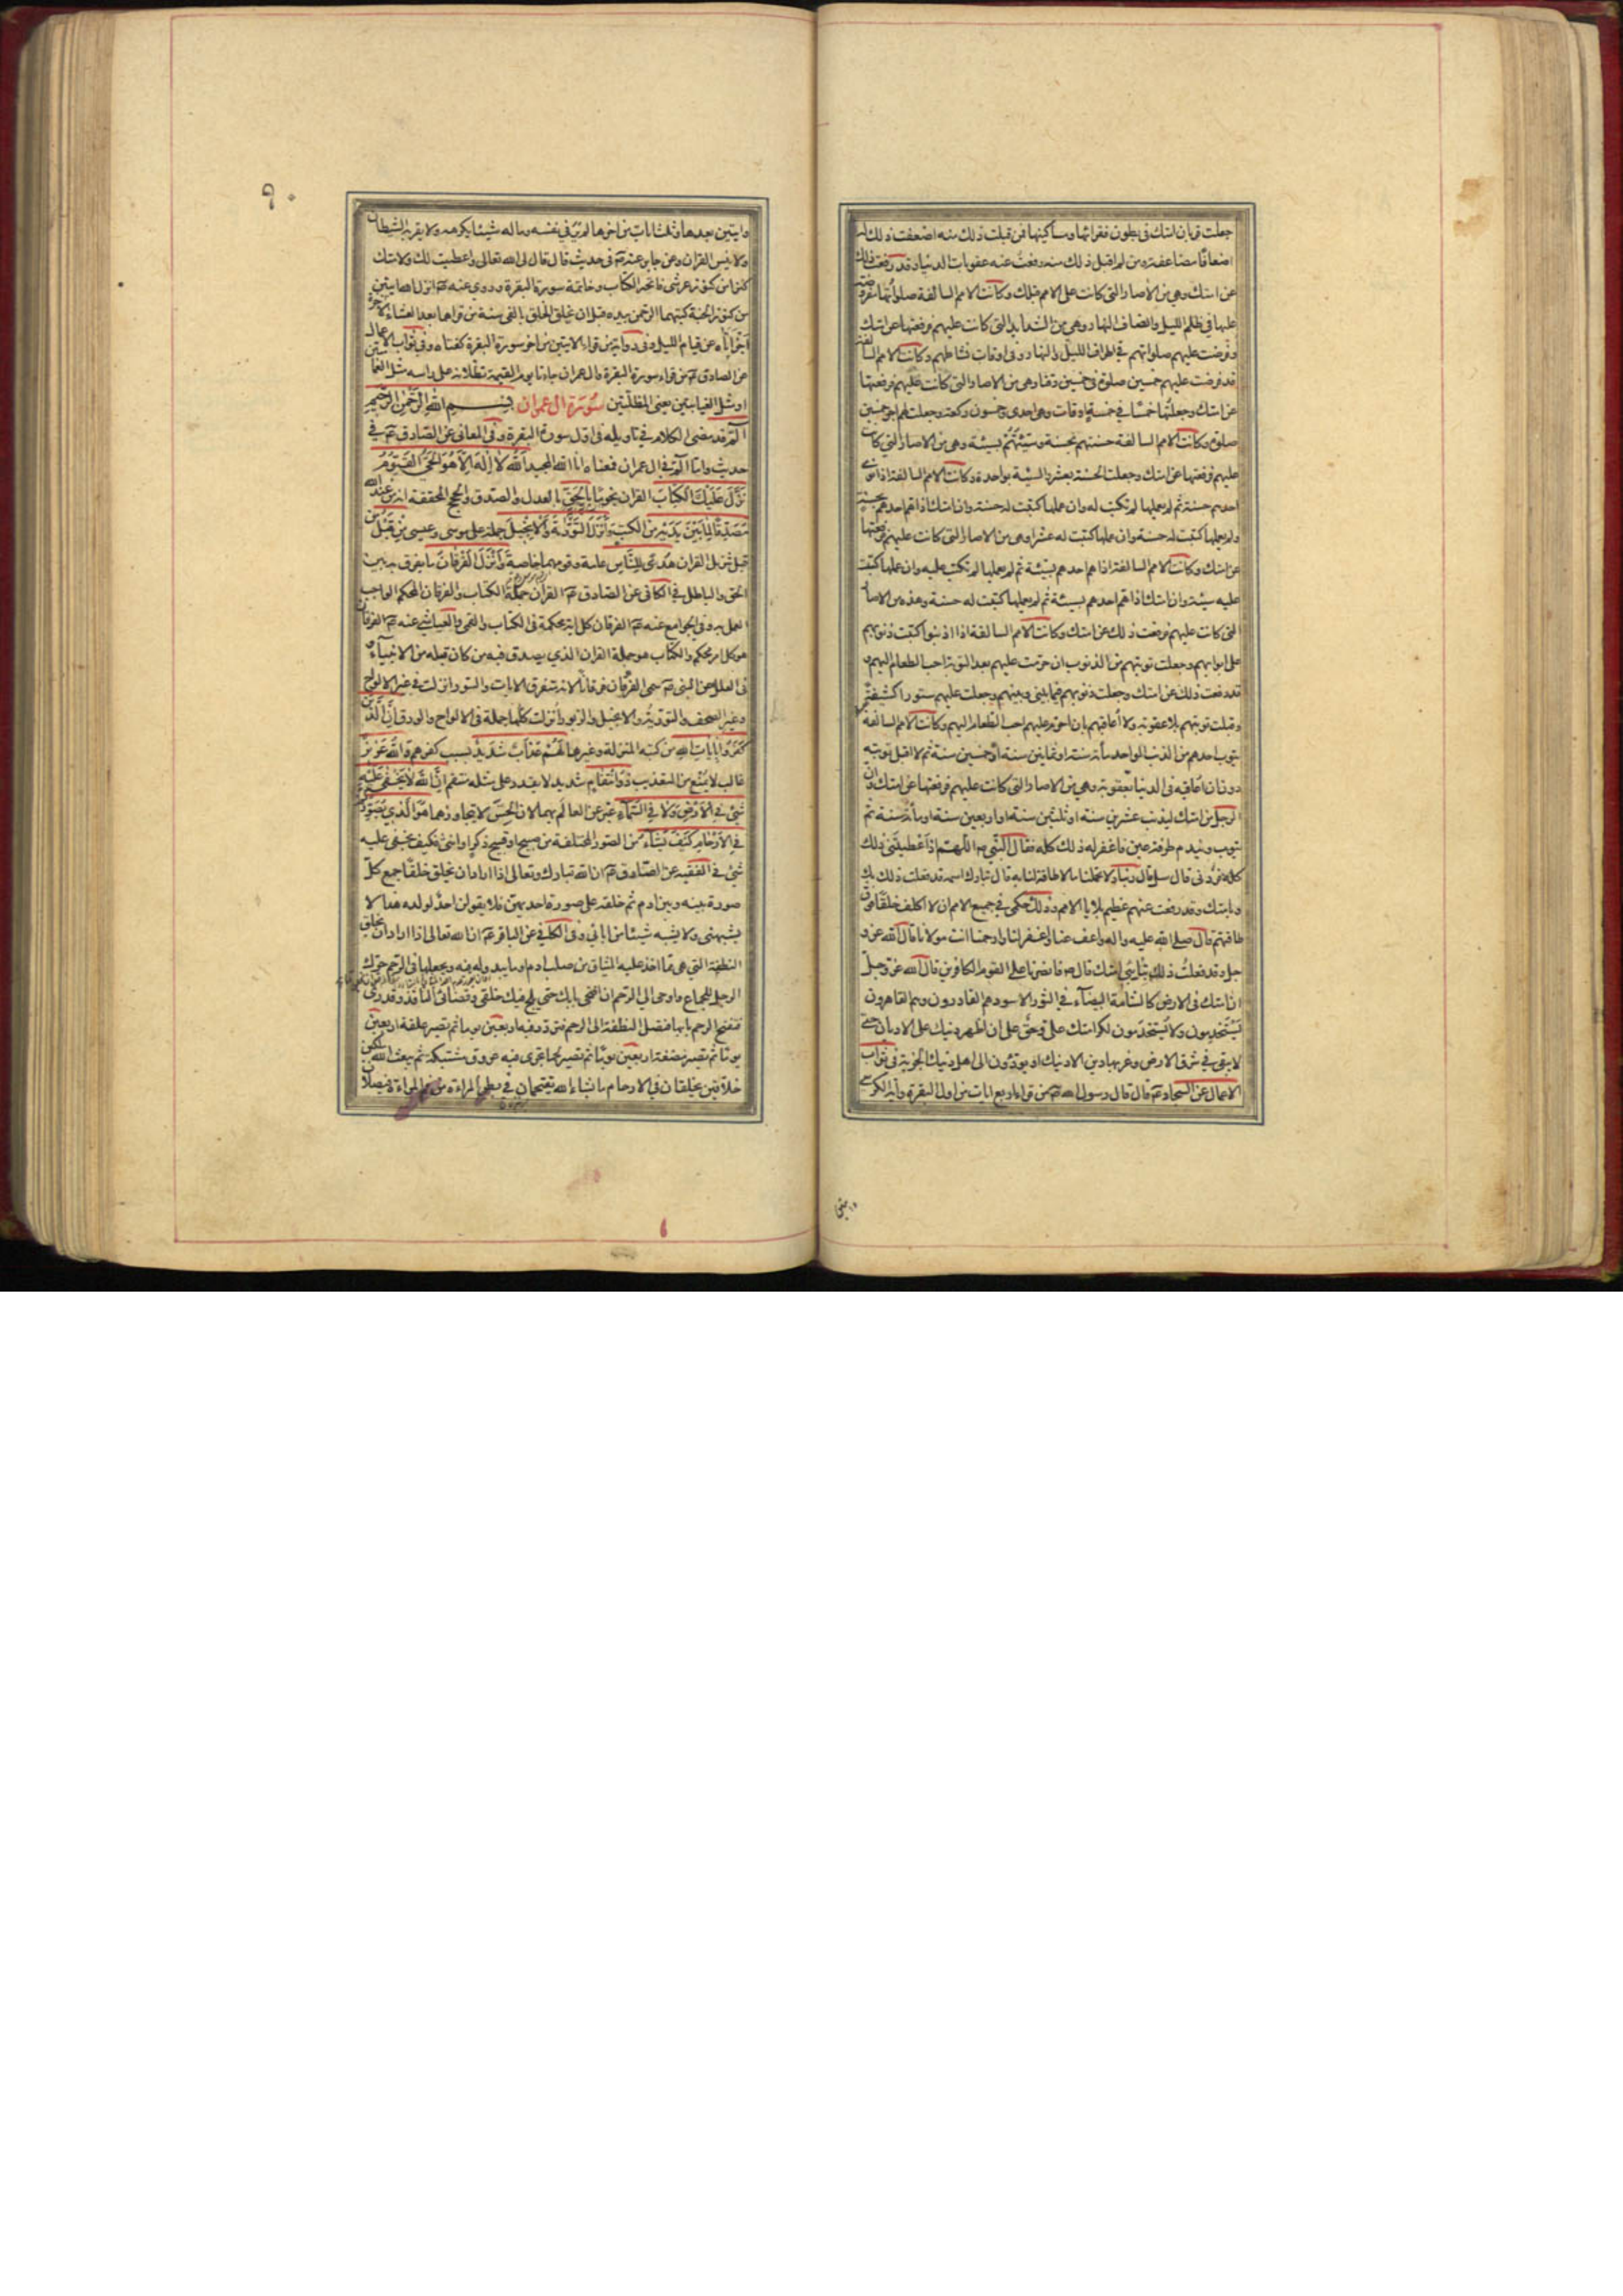 جعلت قربان امتك فى بطون فقرائها ومساكينها فمن قبلت ذلك منه اضعفت ذلك له
اضعافًا مضاعفة ومن لم اقبل ذلك منه رفعت عنه عقوبات الدنيا وقد رفعت ذلك
عن امتك وهى من الآصار التى كانت على الامم قبلك وكانت الامم السالفة صلواتها مفروضة
عليها فى ظلم الليل وانصاف النهار وهى من الشدايد التى كانت عليهم فرفعتها عن امتك
وفرضت عليهم صلواتهم فى اطراف الليل والنهار وفى اوقات نشاطهم وكانت الامم السالفة
قد فرضت عليهم خمسين صلوة فى خمسين وقتا وهى من الاصار التى كانت عليهم فرفعتها
عن امتك وجعلتها خمسًا فى خمسة اوقات وهى احدى وخمسون ركعة وجعلت لهم اجر خمسين
صلوة وكانت الامم السالفة حسنتهم بحسنة وسيئتهم بسيئة وهى من الاصار التى كانت
عليهم فرفعتها عن امتك وجعلت الحسنة بعشر والسيئة بواحدة وكانت الامم السالفة اذا نوى
احدهم حسنة ثم لم يعملها لم تكتب له وان عملها كتبت له حسنة وان امتك اذا هم احدهم بحسنة
ولم يعملها كتبت له حسنة وان عملها كتبت له عشرا وهى من الاصار التى كانت عليهم فرفعتها
عن امتك وكانت الامم السالفة اذا هم احدهم بسيئة ثم لم يعملها لم تكتب عليه وان عملها كتبت
عليه سيئة وان امتك اذا هم احدهم بسيئة ثم لم يعملها كتبت له حسنة وهذه من الاصار
التى كانت عليهم فرفعت ذلك عن امتك وكانت الامم السالفة اذا اذنبوا كتبت ذنوبهم
على ابوابهم وجعلت توبتهم من الذنوب ان حرمت عليهم بعد التوبة احب الطعام اليهم و
قد رفعت ذلك عن امتك وجعلت ذنوبهم فيما بينى وبينهم وجعلت عليهم ستورا كثيفة
وقبلت توبتهم بلا عقوبة ولا اعاقبهم بان احرم عليهم احب الطعام اليهم وكانت الامم السالفة
يتوب احدهم من الذنب الواحد مأة سنة او ثمانين سنة او خمسين سنة ثم لا اقبل توبته
دون ان اعاقبه فى الدنيا بعقوبة وهى من الاصار التى كانت عليهم فرفعتها عن امتك وان
الرجل من امتك ليذنب عشرين سنة او ثلثين سنة او اربعين سنة او مأة سنة ثم
يتوب ويندم طرفة عين فاغفر له ذلك كله فقال النبى ص اللهم اذ اعطيتنى ذلك
كله فزدنى قال سل قال ربنا ولا تحملنا ما لا طاقة لنا به قال تبارك اسمه قد فعلت ذلك بك
وبامتك وقد رفعت عنهم عظيم بلايا الامم وذلك حكمى فى جميع الامم ان لا اكلف خلقا فوق
طاقتهم قال صلى الله عليه واله واعف عنا واغفر لنا وارحمنا انت مولانا قال الله عز و
جل وقد فعلت ذلك بتائبى امتك قال ص فانصرنا على القوم الكافرين قال الله عز وجل
ان امتك فى الارض كالشامة البيضاء فى الثور الاسود هم القادرون وهم القاهرون
يستخدمون ولا يستخدمون لكرامتك على وحق على ان اظهر دينك على الاديان حتى
لا يبقى فى شرق الارض وغربها دين الا دينك او يؤدون الى اهل دينك الجزية فى ثواب
الاعمال عن السجاد عم قال قال رسول الله ص من قراء اربع ايات من اول البقرة واية الكرسى
وايتين
٩٠
وايتين بعدها وثلث ايات من اخرها لم ير فى نفسه وماله شيئا يكرهه ولا يقربه الشيطان
ولا ينسى القران وعن جابر عنه ص فى حديث قال قال لى الله تعالى واعطيت لك ولامتك
كنزا من كنوز عرشى فاتحة الكتاب وخاتمة سورة البقرة وروى عنه ص انزل الله ايتين
من كنوز الجنة كتبهما الرحمن بيده قبل ان يخلق الخلق بالفى سنة من قراهما بعد العشاء الاخرة
اجزاتاه عن قيام الليل وفى رواية من قراء الايتين من اخر سورة البقرة كفتاه وفى ثواب الاعمال
عن الصادق عم من قراء سورة البقرة وال عمران جاءتا يوم القيمة تظلانه على راسه مثل الغمامتين
او مثل الغيابتين يعنى المظلتين سورة ال عمران بسم الله الرحمن الرحيم
الم قد مضى الكلام فى تاويله فى اول سورة البقرة وفى المعانى عن الصادق عم فى
حديث واما الم فى ال عمران فمعناه انا الله المجيد الله لا اله الا هو الحى القيوم
نزل عليك الكتاب القران نجوما بالحق بالعدل والصدق والحجج المحققة انه من عند الله
مصدقا لما بين يديه من الكتب وانزل التورية والانجيل جملة على موسى وعيسى من قبل من
قبل تنزيل القران هدى للناس عامة وقومهما خاصة وانزل الفرقان ما يفرق به بين
الحق والباطل فى الكافى عن الصادق عم القران جملة الكتاب والفرقان المحكم الواجب
العمل به وفى الجوامع عنه عم الفرقان كل اية محكمة فى الكتاب والقمى والعياشى عنه عم الفرقان
هو كل امر محكم والكتاب هو جملة القران الذى يصدق فيه من كان قبله من الانبياء و
فى العلل عن النبى ص سمى الفرقان فرقانا لانه متفرق الايات والسور انزلت فى غير الالواح
وغير الصحف والتورية والانجيل والزبور انزلت كلها جملة فى الالواح والورق ان الذين
كفروا بايات الله من كتبه المنزلة وغيرها لهم عذاب شديد بسبب كفرهم والله عزيز
غالب لا يمنع من التعذيب ذو انتقام شديد لا يقدر على مثله منتقم ان الله لا يخفى عليه
شئ فى الارض ولا فى السماء عبر عن العالم بهما لان الحس لا يتجاوزهما هو الذى يصوركم
فى الارحام كيف يشاء من الصور المختلفة من صبيح او قبيح ذكر او انثى فكيف يخفى عليه
شئ فى الفقيه عن الصادق عم ان الله تبارك وتعالى اذا اراد ان يخلق خلقا جمع كل
صورة بينه وبين ادم ثم خلقه على صورة احديهن فلا يقولن احد لولده هذا لا
يشبهنى ولا يشبه شيئا من ابائى وفى الكافى عن الباقر عم ان الله تعالى اذا اراد ان يخلق
النطفة التى هى مما اخذ عليه الميثاق من صلب ادم او ما يبدو له فيه ويجعلها فى الرحم حرك
الرجل للجماع واوحى الى الرحم ان افتحى بابك حتى يلج فيك خلقى وقضائى النافذ وقدرى
فتفتح الرحم بابها فتصل النطفة الى الرحم فتردد فيه اربعين يوما ثم تصير علقة اربعين
يوما ثم تصير مضغة اربعين يوما ثم تصير لحما تجرى فيه عروق مشتبكة ثم يبعث الله ملكين
خلاقين يخلقان فى الارحام ما يشاء الله يقتحمان فى بطن المراة من فم المراة فيصلان